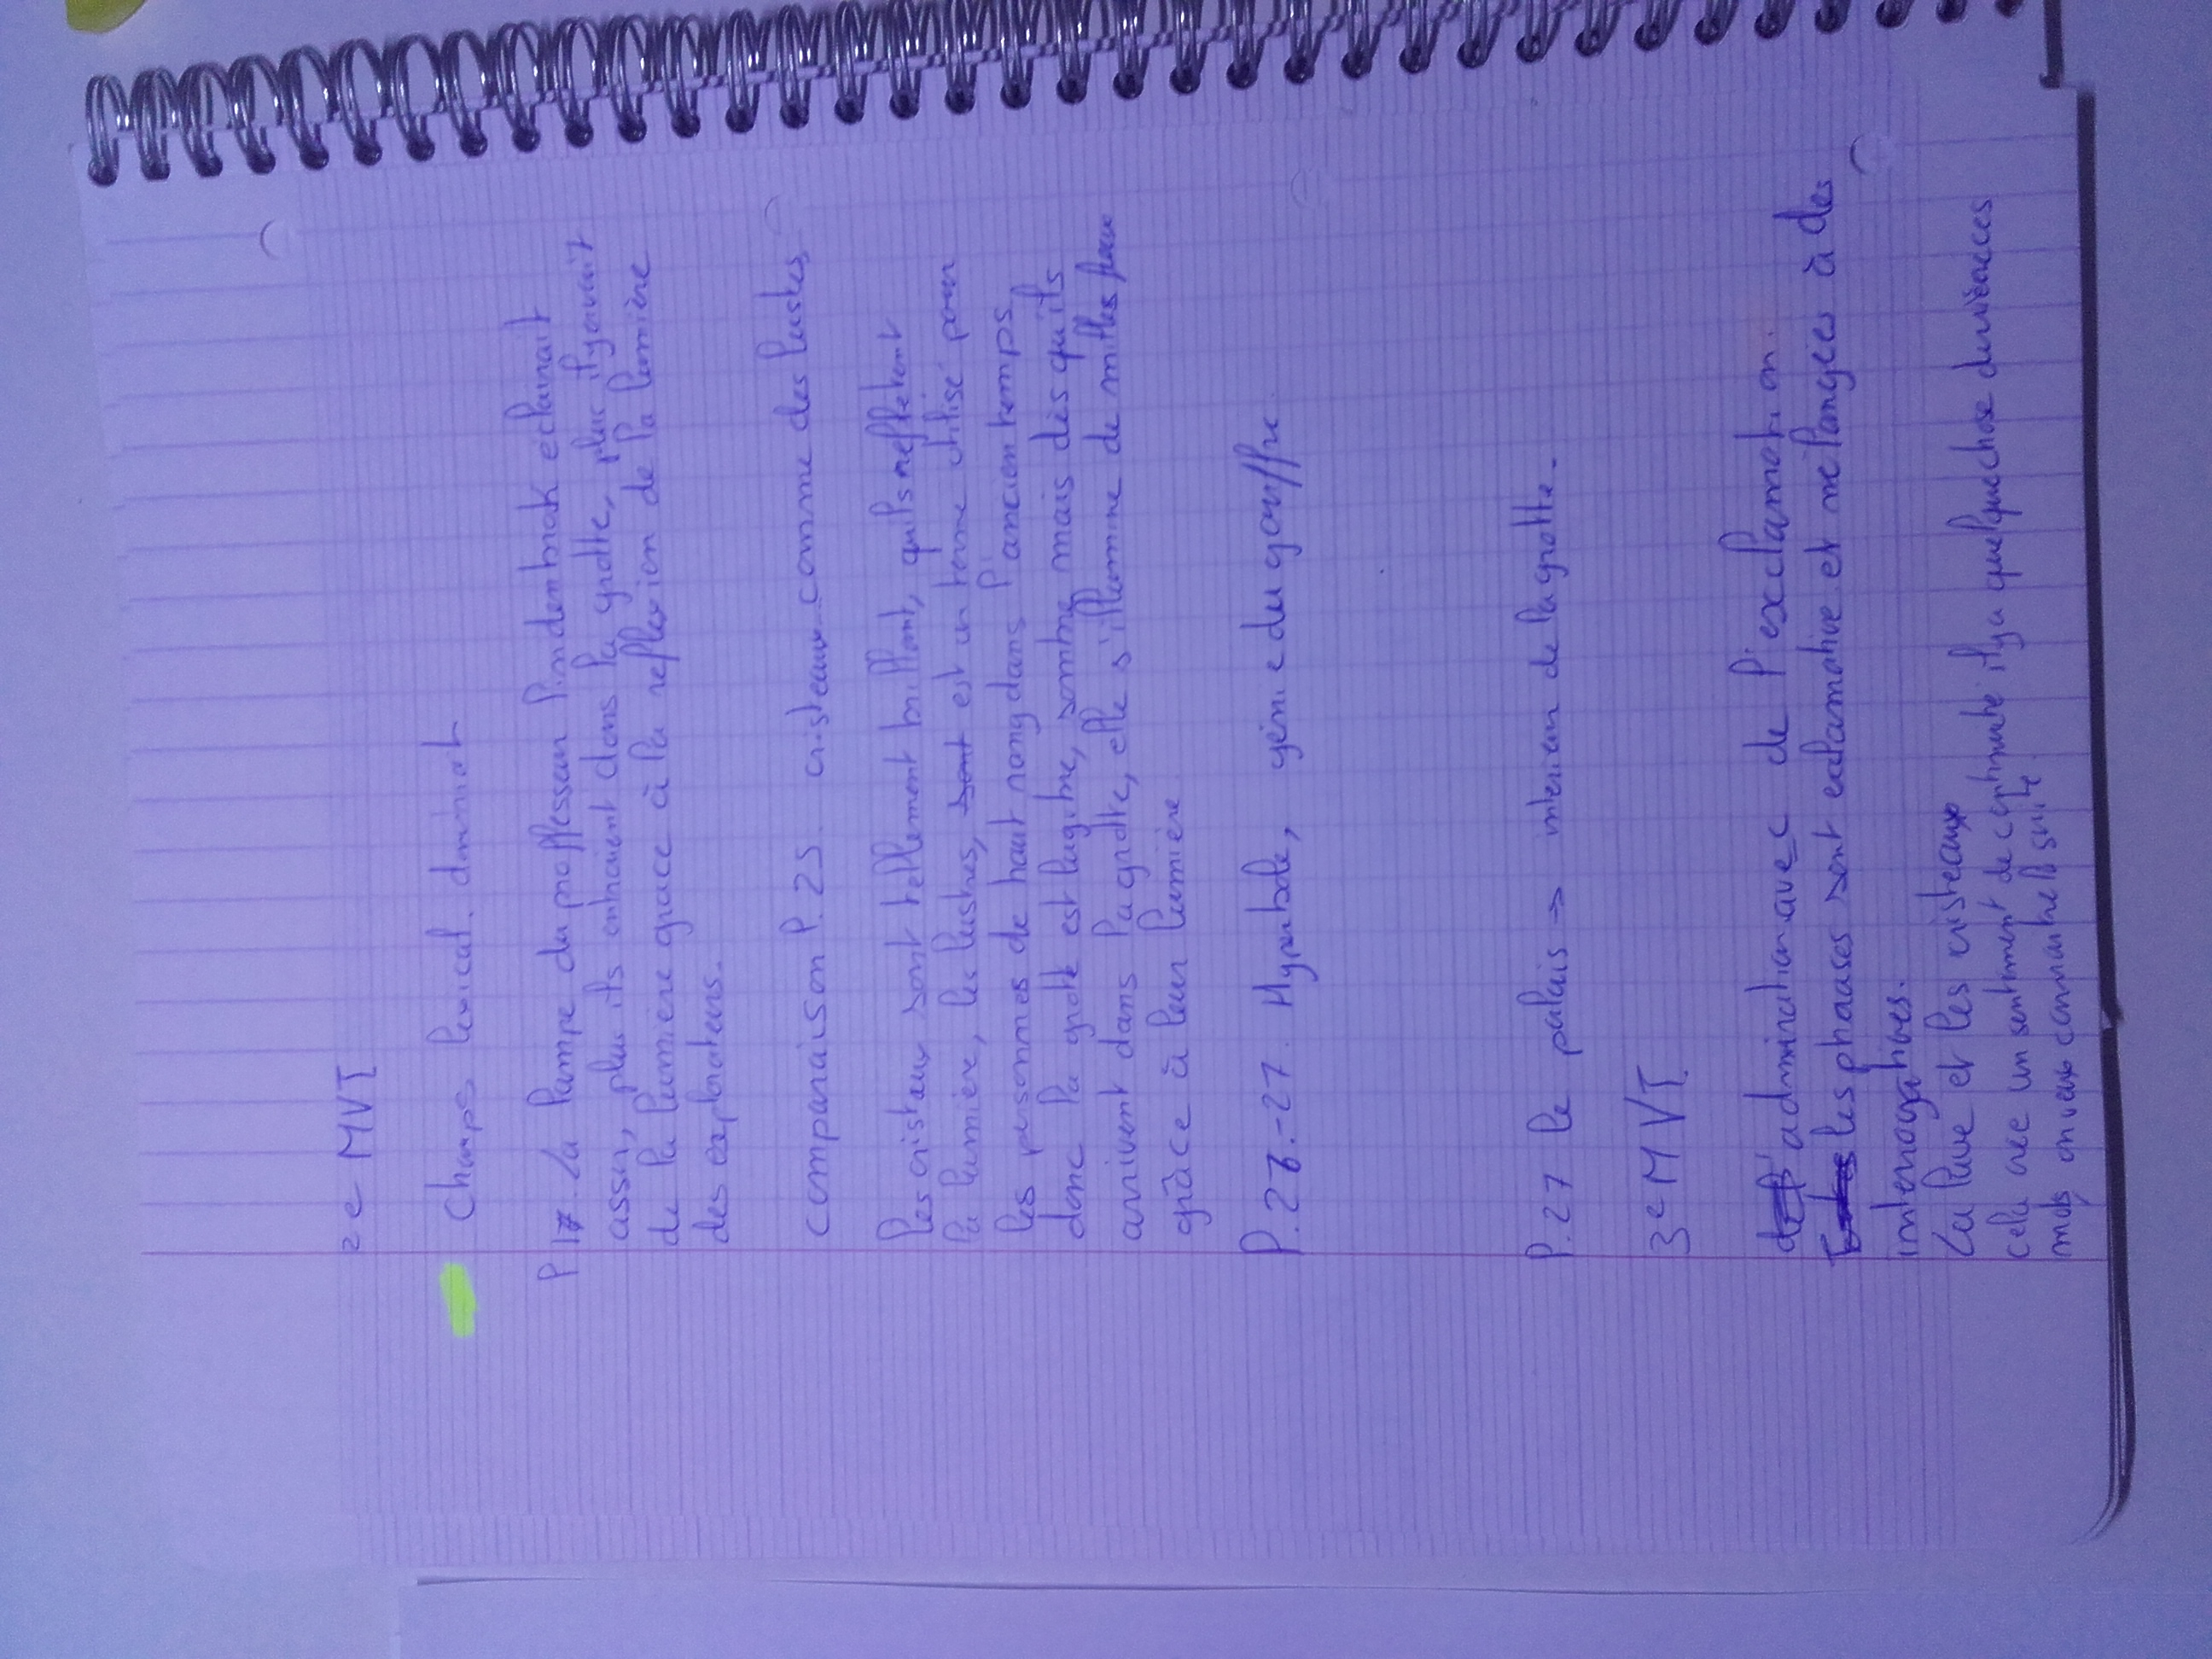 2e MVT
Champs lexical. dominat
P 17. La lampe du proffesseur lindenbrok eclairait
asser, plus ils entraient dans la grotte, plus ilyavait
de la lumière grace à la reflexion de la lumière
des explorateurs.
comparaison P. 25. cristeaux comme des lustres
les cristaux sont tellement brillant, quils refflètent
la lumière, les lustres, est un terme utilisé pour
les personnes de haut rang dans l'ancien temps,
donc la grotte est lugubre, sombre mais dès quils
arrivent dans la grotte, elle s'illumine de milles feux
grâce à leur lumière
P. 26.-27. Hyperbole, génie du gouffre
P. 27 le palais → interieur de la grotte.
3e MVT.
admiration avec de l'exclamation.
les phrases sont exclamative et melangées à des
interrogatives.
La lave et les cristeaux
cela cree un sentiment de continuité ilya quelquechose derrière ces
mots on veux connaitre la suite.